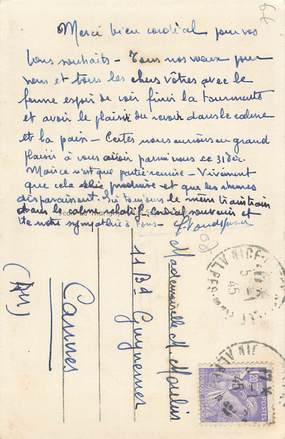 Merci bien cordial pour vos
bons souhaits - Tous nos vœux pour
vous et tous les chers vôtres avec le
ferme espoir de voir finir la tourmente
et avoir le plaisir du revoir dans le calme
et la paix - Certes nous aurions eu grand
plaisir à vous avoir parmi nous ce 31 déc.
Mais ce n'est que partie remise - Vivement
que cela se produise et que les
disparaissent. Ici toujours le même train train
dans le calme relatif. Cordial souvenir et
de notre sympathie à tous -
Mademoiselle M. Moulin
11 Bd Guynemer
Cannes
(AM)
NICE
45